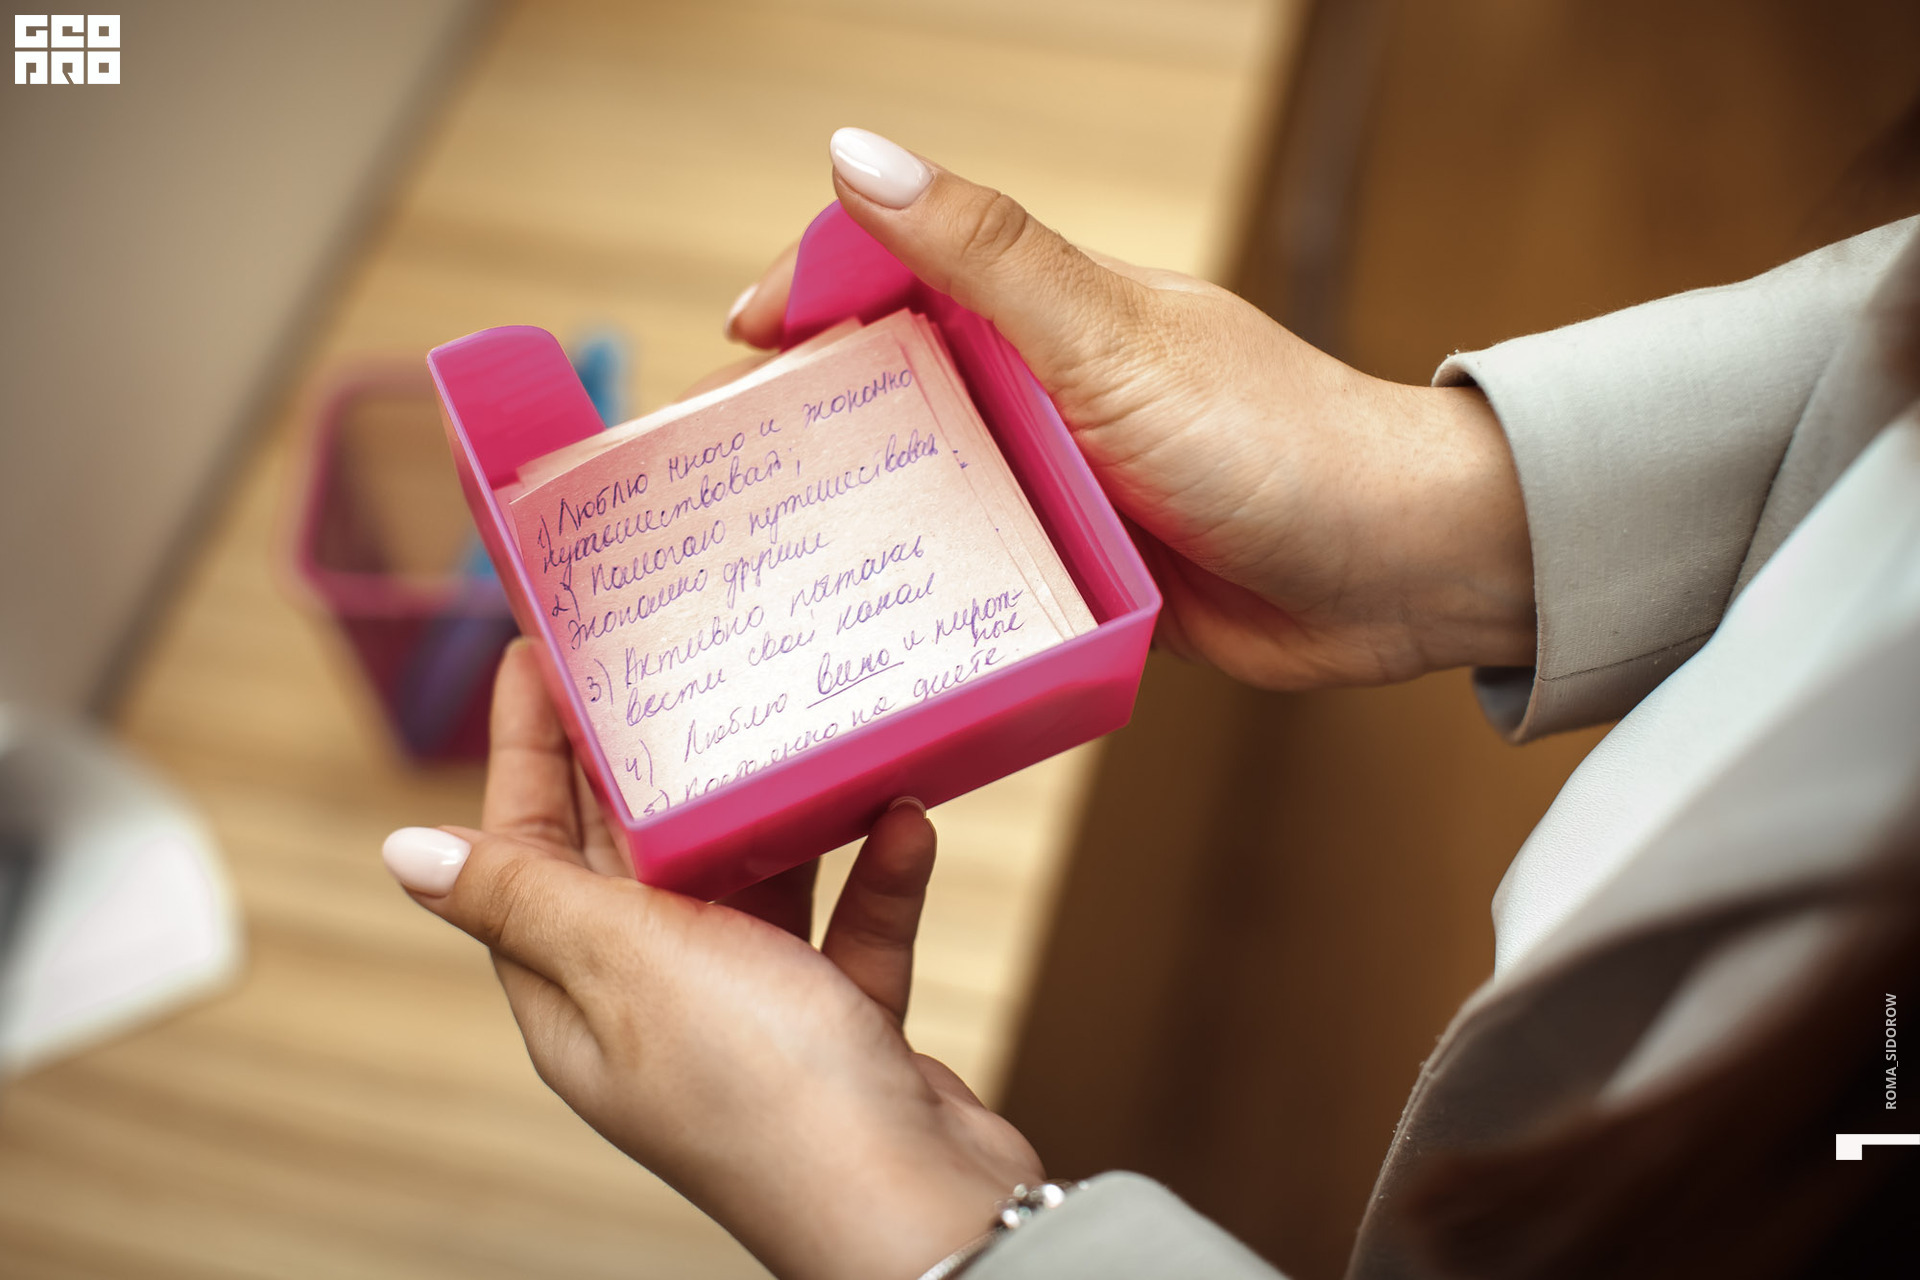 GEO
PRO
1) Люблю много и экономно
путешествовать;
2) Помогаю путешествовать
экономно другим
3) Активно пытаюсь
вести свой канал
4) Люблю вино и пирож-
ные
5) Постоянно на диете.
ROMA_SIDOROW